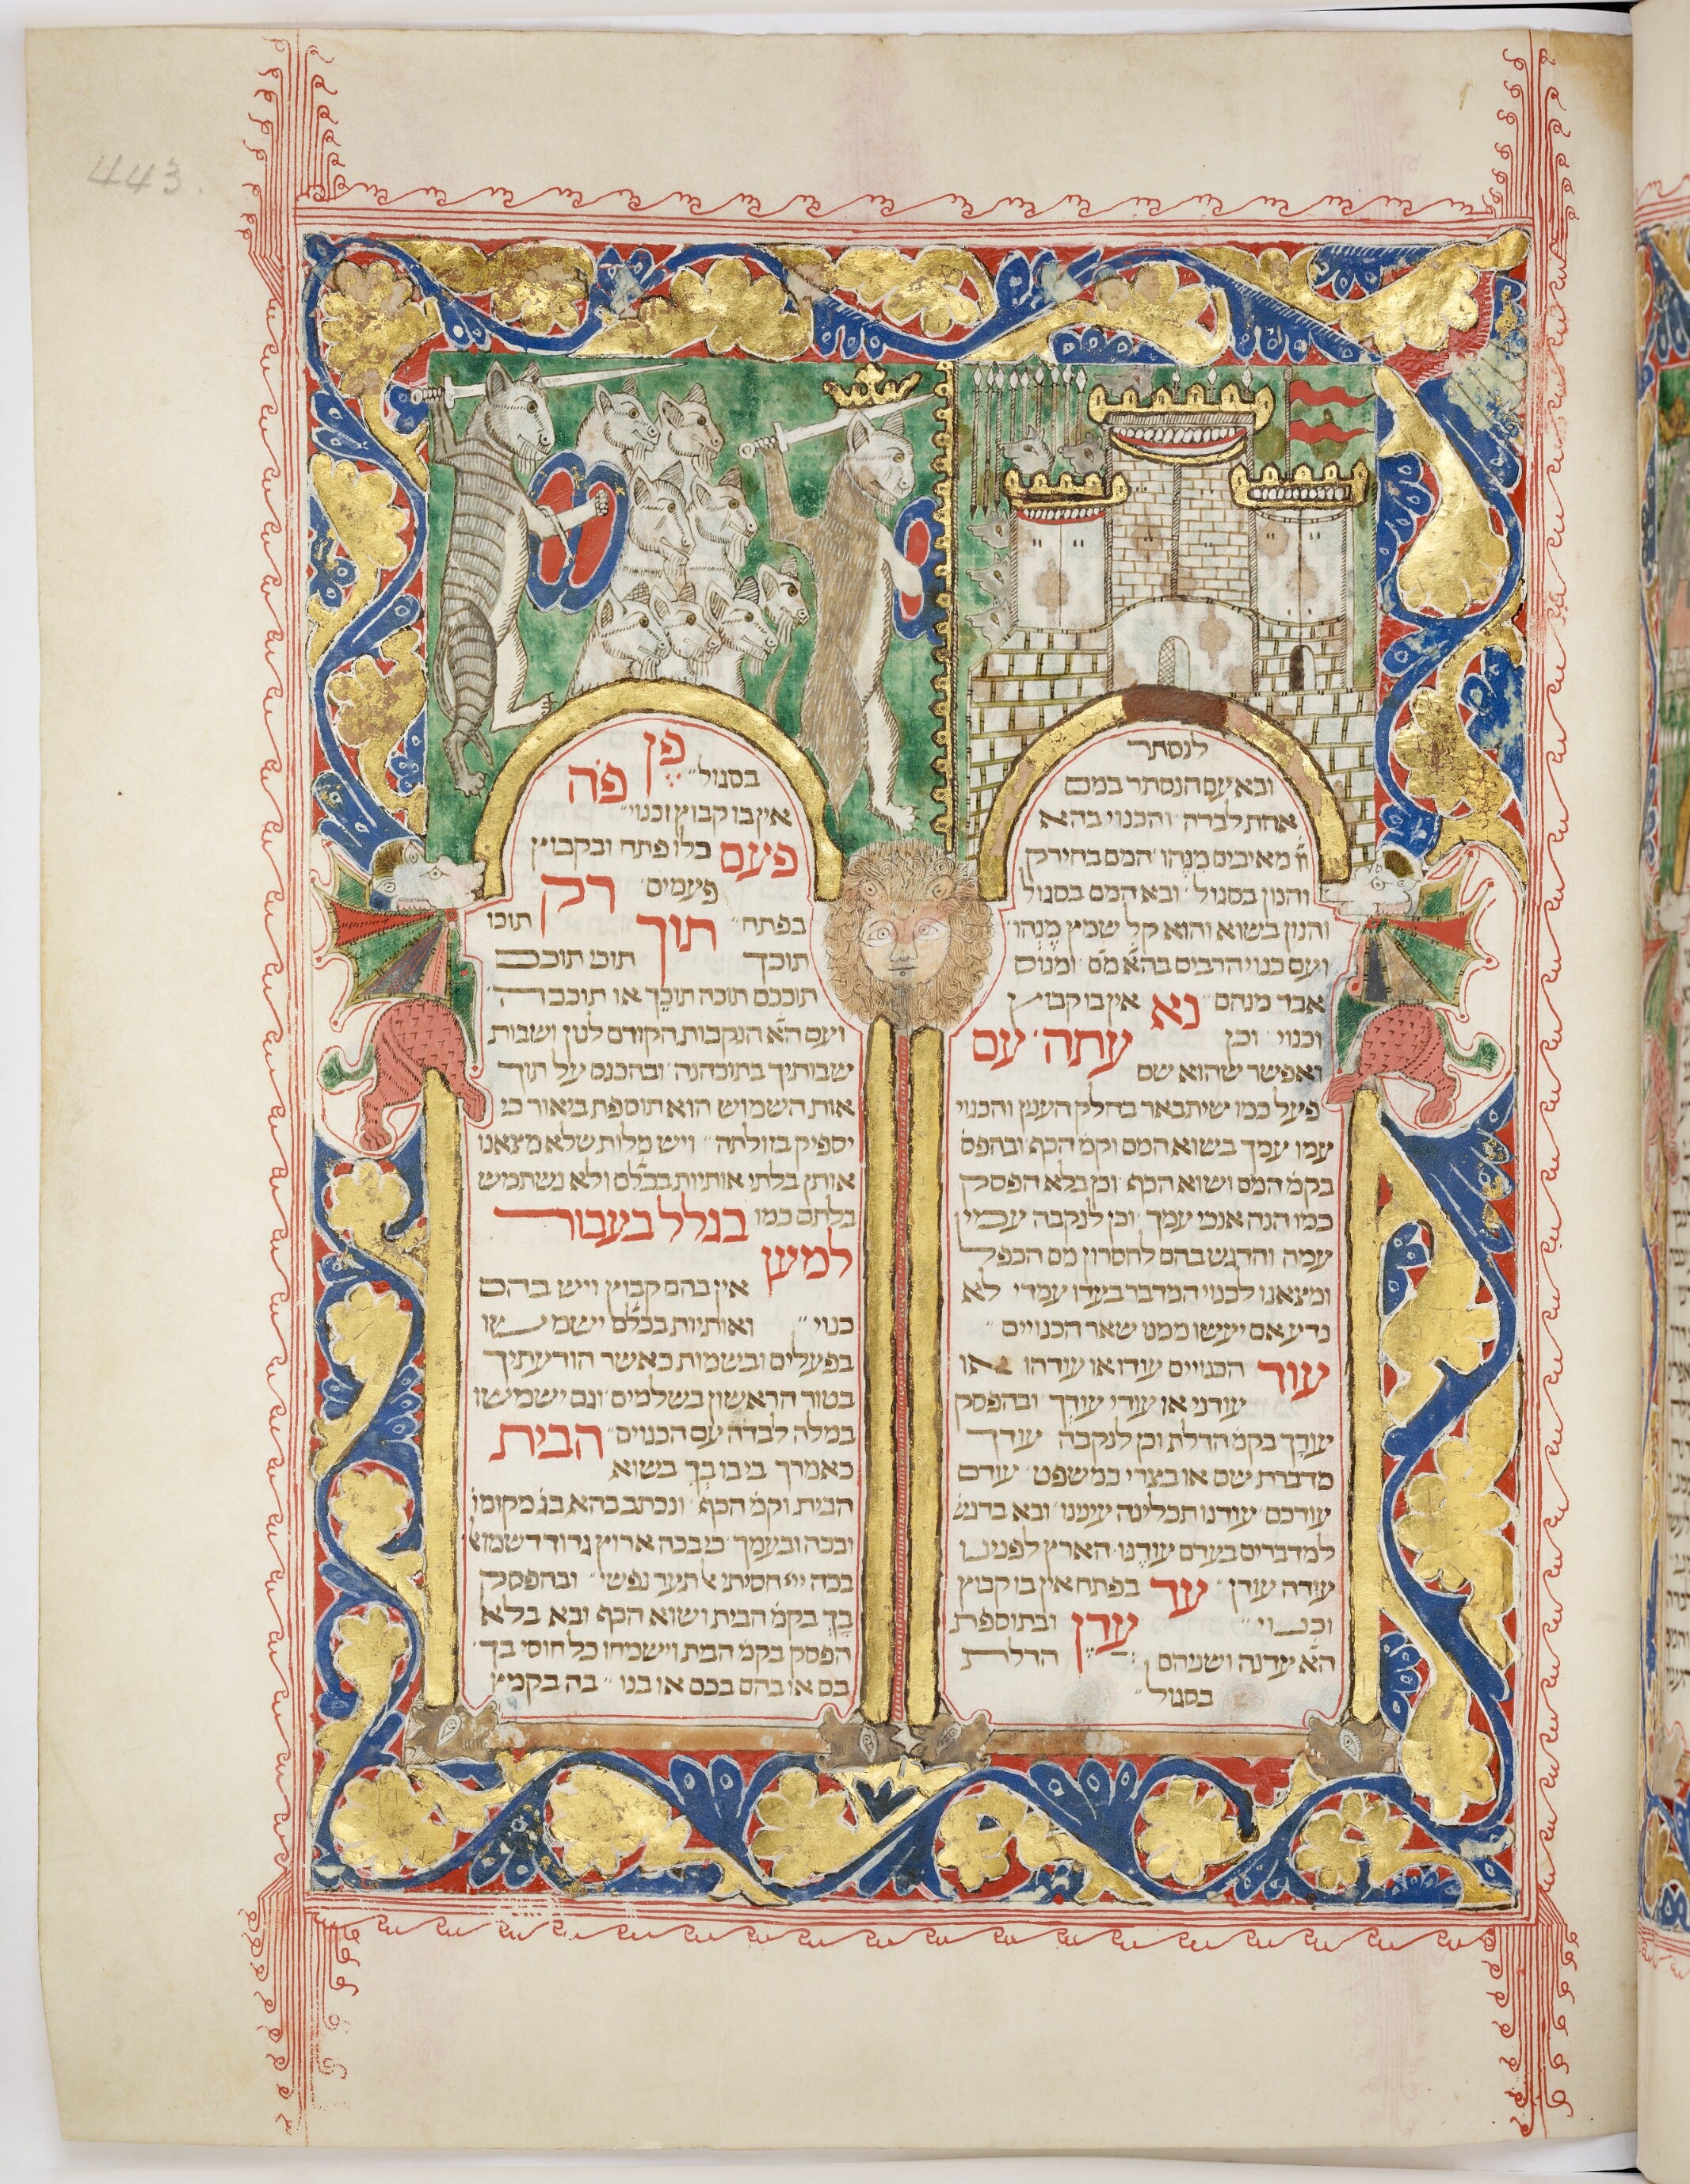 443.
לנסתר
ובא עם הנסתר במם
אחת לבדה והכנוי בהא
והנון בסגול ובא המם בסגול
והנון בשוא והוא קל שמץ מנהו
ועם כנוי הרבים בהא מהם ומנהם
אבד מנהם נא אין בו קבוץ
וכנוי וכן עתה עם
ואפשר שהוא שם
פעל כמו שיתבאר בחלק הענין והכנוי
עמו עמך בשוא המם וקמ הכף ובהפס
בקמ המם ושוא הכף וכן בלא הפסק
כמו הנה אנכי עמך וכן לנקבה עמך
עמה והדגש בהם לחסרון מם הכפל
ומצאנו לכנוי המדבר בעדו עמדי לא
נדע אם יעשו ממנו שאר הכנויים
עוד הכנויים עודו או עודהו או
עודני או עודי עודך ובהפסק
עודך בקמ הדלת וכן לנקבה עודך
מדברת שם או בצרי כמשפט עודם
עודכם עודנו תכלינה עינינו ובא בדגש
למדברים בעדם עודנו הארץ לפנינו
עודה עודן עד בפתח אין בו קבוץ
וכנוי עדן ובתוספת
הא עדנה ושניהם הדלת
בסגול
פן בסגול פה
אין בו קבוץ וכנוי
פעם כלו פתח ובקבוץ
פעמים רק
בפתח תוך תוכו
תוכך תוכנו תוכם
תוככם תוכה תוכך או תוככה
ועם הא הנקבות הקודם לנון ושבות
שבותיך בתוכהנה ובהכנס על תוך
אות השמוש הוא תוספת ביאור כי
יספיק בזולתה ויש מלות שלא מצאנו
אותן בלתי אותיות בכלם ולא נשתמש
בלתם כמו בגלל בעבור
למען
אין בהם קבוץ ויש בהם
כנוי ואותיות בכלם ישמשו
בפעלים ובשמות כאשר הודעתיך
בטור הראשון בשלמים וגם ישמשו
במלה לבדה עם הכנוים הבית
כאמרך בי בו בך בשוא
הבית וקמ הכף ונכתב בהא בג מקומו
ובכה ובעמך כי בכה ארוץ גדוד דשמואל
בכה ייי חסיתי אל תער נפשי ובהפסק
בך בקמ הבית ושוא הכף ובא בלא
הפסק בקמ הבית וישמחו כל חוסי בך
בם או בהם בכם או בנו בה בקמץ